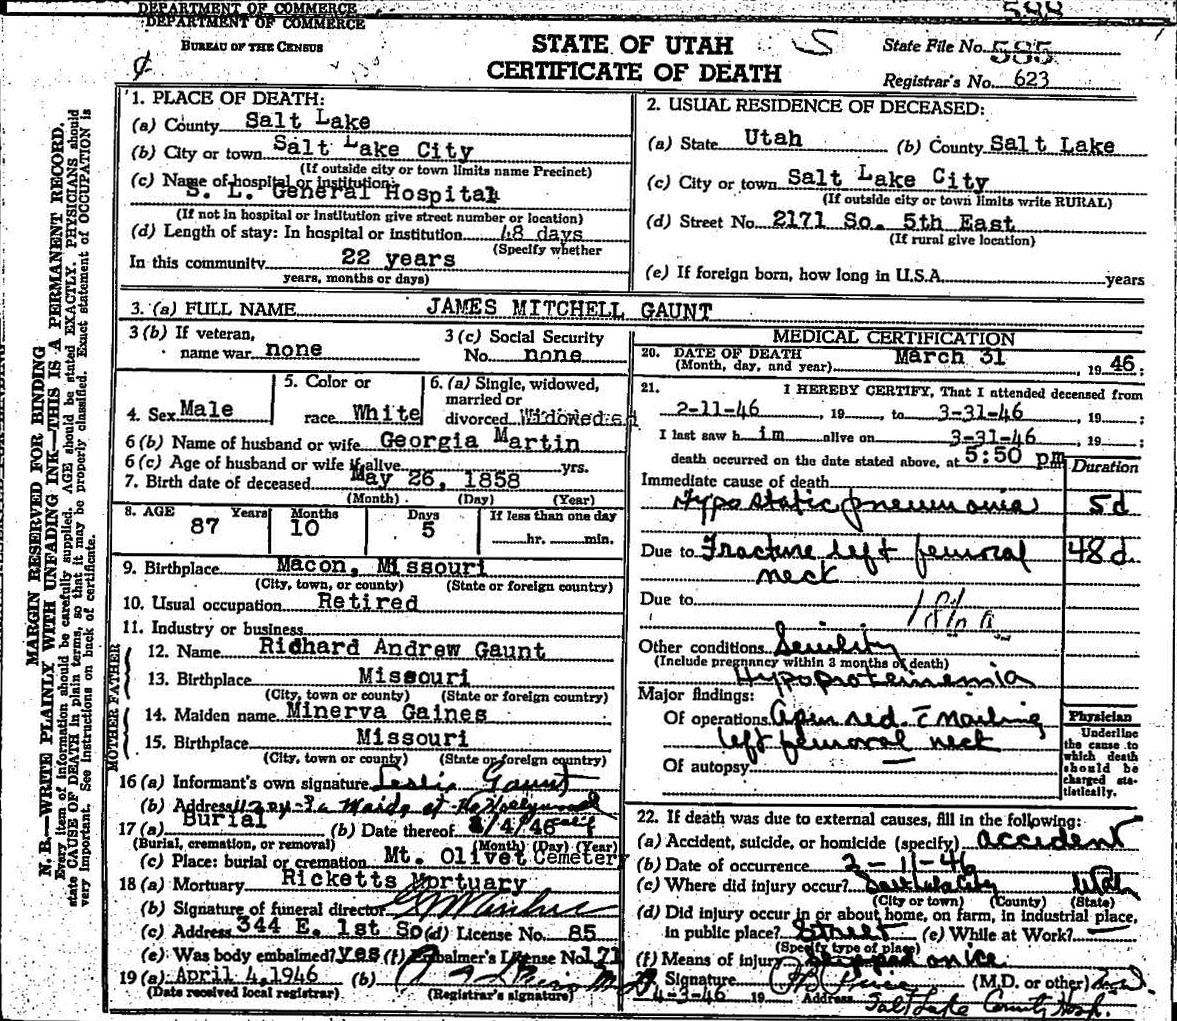 DEPARTMENT OF COMMERCE
DEPARTMENT OF COMMERCE
BUREAU OF THE CENSUS
STATE OF UTAH
CERTIFICATE OF DEATH
588
State File No. 585
Registrar's No. 623
MARGIN RESERVED FOR BINDING
N. B.—WRITE PLAINLY WITH UNFADING INK—THIS IS A PERMANENT RECORD.
Every item of information should be carefully supplied. AGE should be stated EXACTLY. PHYSICIANS should
state CAUSE OF DEATH in plain terms, so that it may be properly classified. Exact statement of OCCUPATION is
very important. See instructions on back of certificate.
1. PLACE OF DEATH:
(a) County Salt Lake
(b) City or town Salt Lake City
(If outside city or town limits name Precinct)
(c) Name of hospital or institution:
S. L. General Hospital
(If not in hospital or institution give street number or location)
(d) Length of stay: In hospital or institution 48 days
(Specify whether
In this community 22 years
years, months or days)
2. USUAL RESIDENCE OF DECEASED:
(a) State Utah (b) County Salt Lake
(c) City or town Salt Lake City
(If outside city or town limits write RURAL)
(d) Street No. 2171 So. 5th East
(If rural give location)
(e) If foreign born, how long in U.S.A. years
3. (a) FULL NAME JAMES MITCHELL GAUNT
3 (b) If veteran,
name war none
3 (c) Social Security
No. none
4. Sex Male
5. Color or
race White
6. (a) Single, widowed,
married or
divorced Widowed
6 (b) Name of husband or wife Georgia Martin
6 (c) Age of husband or wife if alive yrs.
7. Birth date of deceased May 26, 1858
(Month) (Day) (Year)
8. AGE Years Months Days If less than one day
87 10 5 hr. min.
9. Birthplace Macon, Missouri
(City, town, or county) (State or foreign country)
10. Usual occupation Retired
11. Industry or business
FATHER
12. Name Richard Andrew Gaunt
13. Birthplace Missouri
(City, town or county) (State or foreign country)
MOTHER
14. Maiden name Minerva Gaines
15. Birthplace Missouri
(City, town or county) (State or foreign country)
16 (a) Informant's own signature Leslie Gaunt
(b) Address
17 (a) Burial (b) Date thereof 4/4/46
(Burial, cremation, or removal) (Month) (Day) (Year)
(c) Place: burial or cremation Mt. Olivet Cemetery
18 (a) Mortuary Ricketts Mortuary
(b) Signature of funeral director
(c) Address 344 E. 1st So (d) License No. 85
(e) Was body embalmed? yes (f) Embalmer's License No 171
19 (a) April 4, 1946 (b)
(Date received local registrar) (Registrar's signature)
MEDICAL CERTIFICATION
20. DATE OF DEATH March 31, 19 46;
(Month, day, and year)
21. I HEREBY CERTIFY, That I attended deceased from
2-11-46, 19 , to 3-31-46, 19 ;
I last saw h im alive on 3-31-46, 19 ;
death occurred on the date stated above, at 5:50 pm
Duration
Immediate cause of death
Hypostatic pneumonia 5d
Due to Fracture left femoral 48d.
neck
Due to
Other conditions Senility
(Include pregnancy within 3 months of death)
Hypoproteinemia
Major findings:
Of operations Open red. c̄ nailing
left femoral neck
Of autopsy
Physician
Underline
the cause to
which death
should be
charged sta-
tistically.
22. If death was due to external causes, fill in the following:
(a) Accident, suicide, or homicide (specify) accident
(b) Date of occurrence 2-11-46
(c) Where did injury occur? Salt Lake City Utah
(City or town) (County) (State)
(d) Did injury occur in or about home, on farm, in industrial place,
in public place? Street (e) While at Work?
(Specify type of place)
(f) Means of injury Slipped on ice
Signature (M.D. or other) M.D.
4-3-46 19 Address Salt Lake County Hosp.